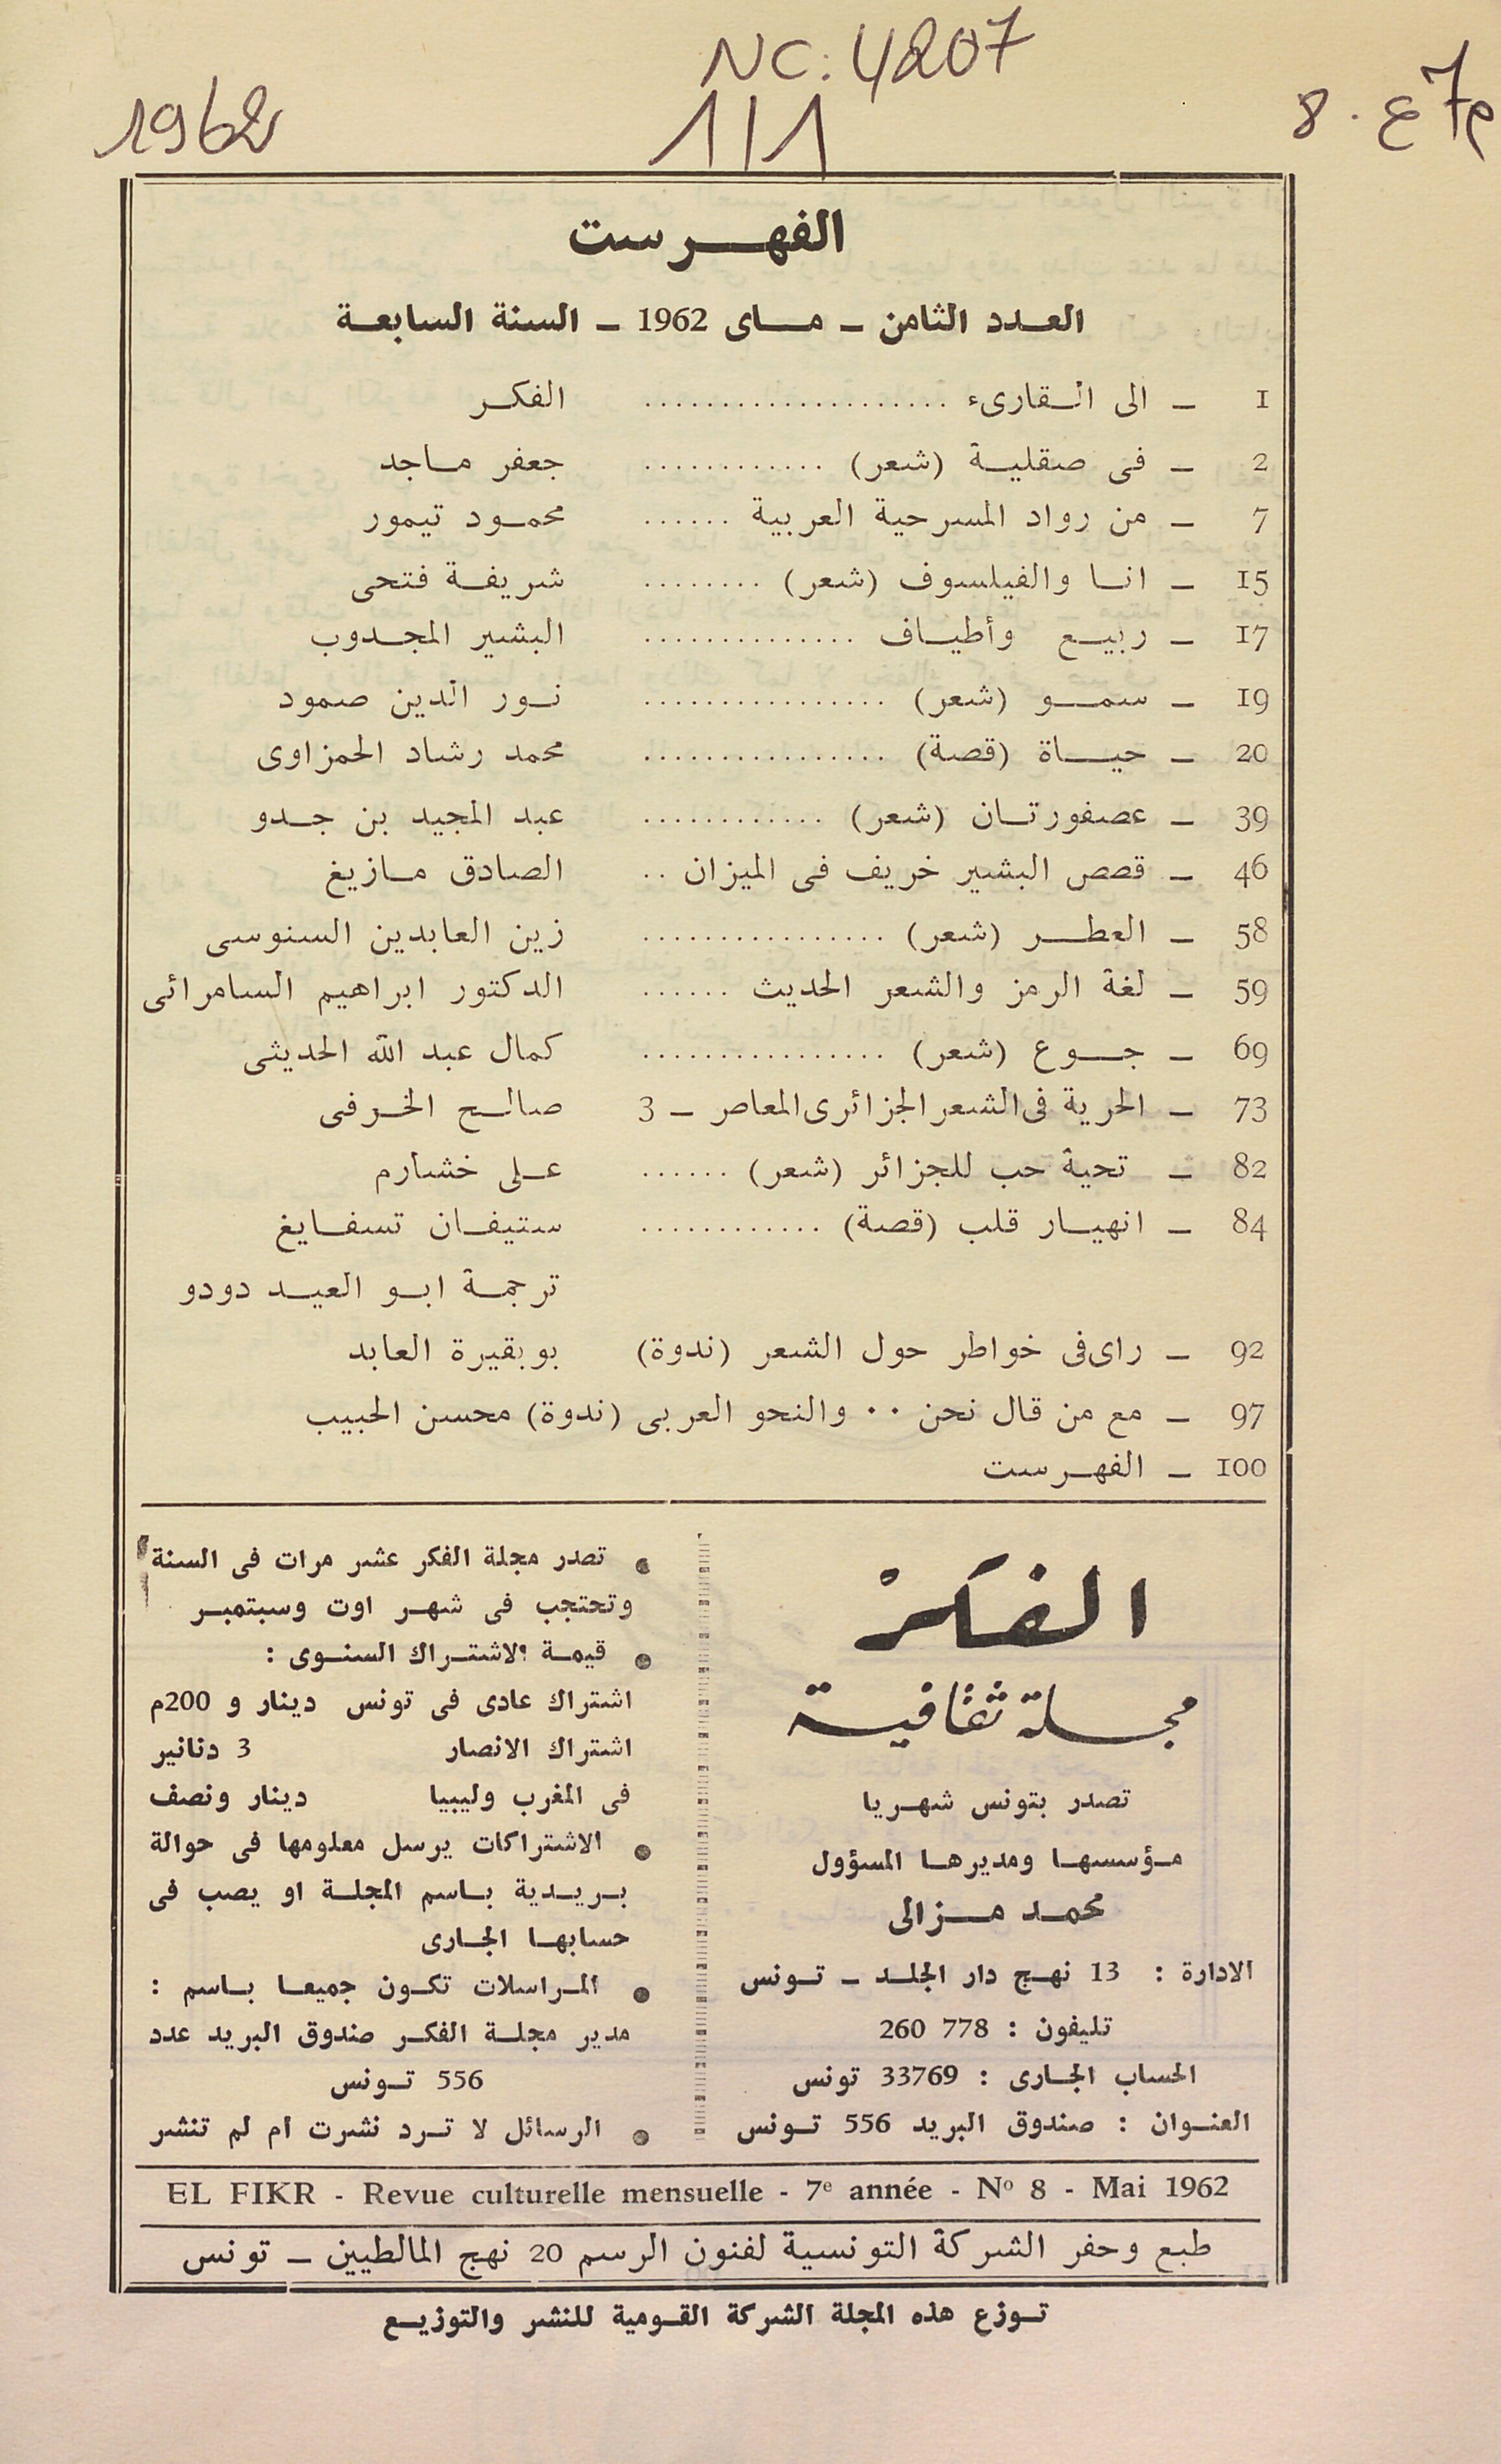 NC: 4207
1962
111
م7 ع. 8
الفهرست
العدد الثامن – ماى 1962 – السنة السابعة
1 – الى القارىء .................... الفكر
2 – فى صقلية (شعر) ............ جعفر ماجد
7 – من رواد المسرحية العربية ...... محمود تيمور
15 – انا والفيلسوف (شعر) ........ شريفة فتحى
17 – ربيع وأطياف .............. البشير المجدوب
19 – سمو (شعر) ................ نور الدين صمود
20 – حياة (قصة) ................ محمد رشاد الحمزاوى
39 – عصفورتان (شعر) ............ عبد المجيد بن جدو
46 – قصص البشير خريف فى الميزان .. الصادق مازيغ
58 – العطر (شعر) ................ زين العابدين السنوسى
59 – لغة الرمز والشعر الحديث ...... الدكتور ابراهيم السامرائى
69 – جوع (شعر) ................ كمال عبد الله الحديثى
73 – الحرية فى الشعر الجزائرى المعاصر – 3 صالح الخرفى
82 – تحية حب للجزائر (شعر) ...... على خشارم
84 – انهيار قلب (قصة) ............ ستيفان تسفايغ
ترجمة ابو العيد دودو
92 – راى فى خواطر حول الشعر (ندوة) بوبقيرة العابد
97 – مع من قال نحن ٠٠ والنحو العربى (ندوة) محسن الحبيب
100 – الفهرست
الفكر
مجلة ثقافية
تصدر بتونس شهريا
مؤسسها ومديرها المسؤول
محمد مزالى
الادارة : 13 نهج دار الجلد – تونس
تليفون : 778 260
الحساب الجارى : 33769 تونس
العنوان : صندوق البريد 556 تونس
● تصدر مجلة الفكر عشر مرات فى السنة
وتحتجب فى شهر اوت وسبتمبر
● قيمة الاشتراك السنوى :
اشتراك عادى فى تونس دينار و 200م
اشتراك الانصار 3 دنانير
فى المغرب وليبيا دينار ونصف
● الاشتراكات يرسل معلومها فى حوالة
بريدية باسم المجلة او يصب فى
حسابها الجارى
● المراسلات تكون جميعا باسم :
مدير مجلة الفكر صندوق البريد عدد
556 تونس
● الرسائل لا ترد نشرت ام لم تنشر
EL FIKR - Revue culturelle mensuelle - 7e année - No 8 - Mai 1962
طبع وحفر الشركة التونسية لفنون الرسم 20 نهج المالطيين – تونس
توزع هذه المجلة الشركة القومية للنشر والتوزيع